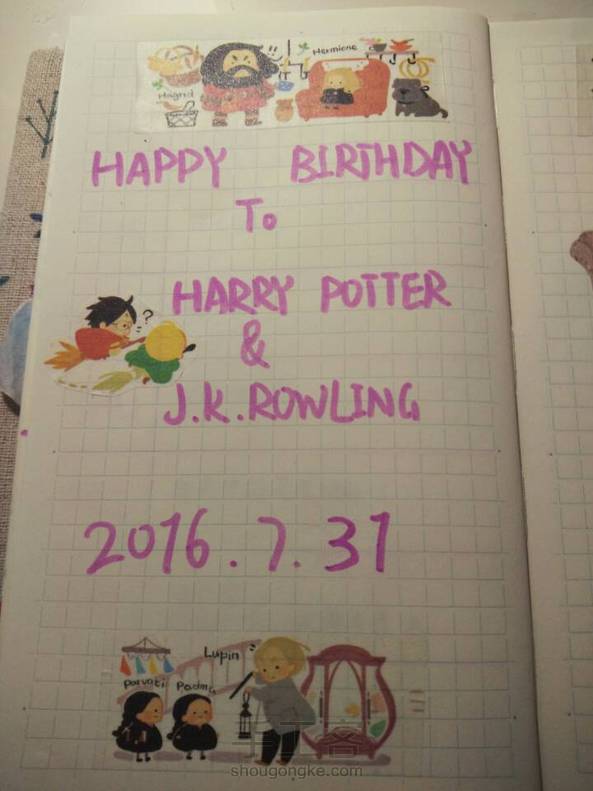 Hermione
Hagrid
HAPPY BIRTHDAY
To
HARRY POTTER
?
&
J.K.ROWLING
2016.7.31
Lupin
Parvati Padma
手工客
shougongke.com